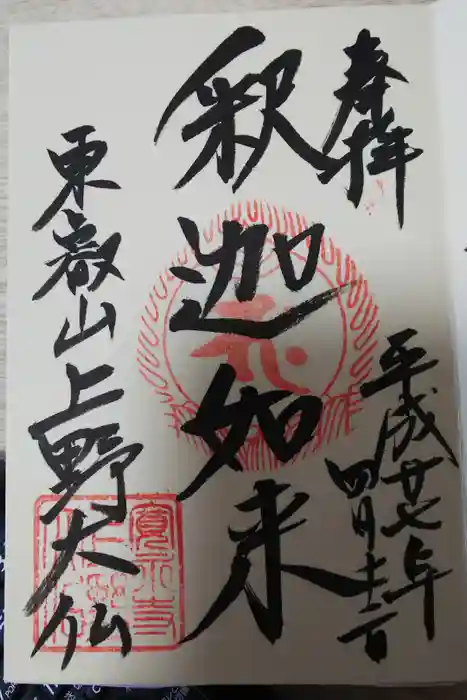 奉拝
平成廿七年
四月
釈迦如来
東叡山上野大仏
寛永寺